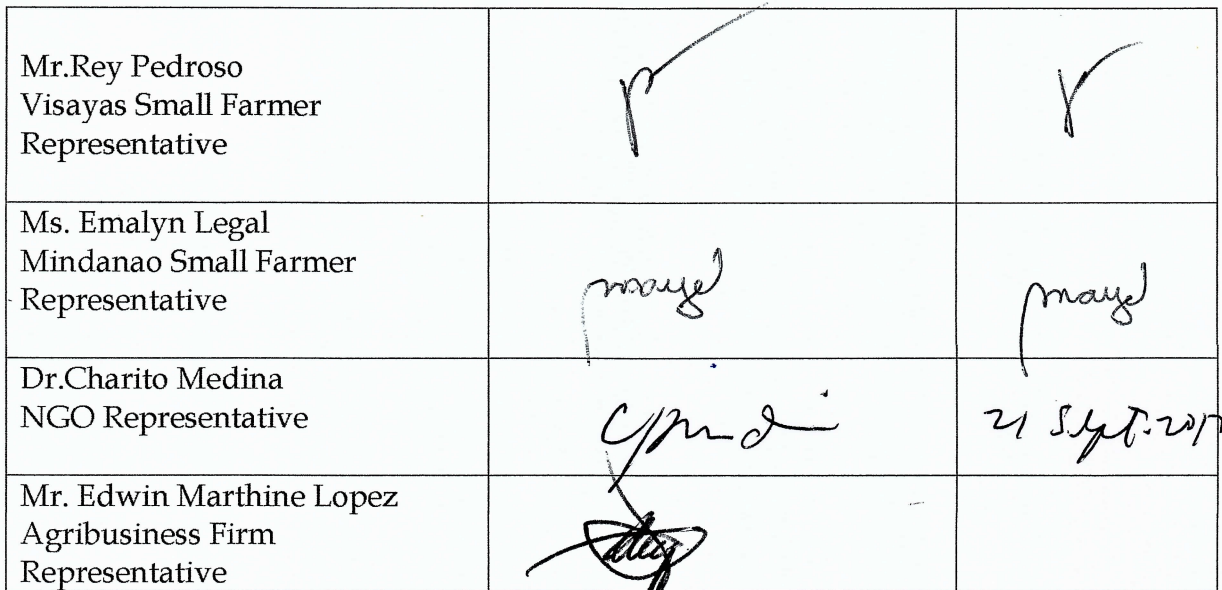 Mr.Rey Pedroso
Visayas Small Farmer
Representative
Ms. Emalyn Legal
Mindanao Small Farmer
Representative
Dr.Charito Medina
NGO Representative
21 Sept. 2017
Mr. Edwin Marthine Lopez
Agribusiness Firm
Representative